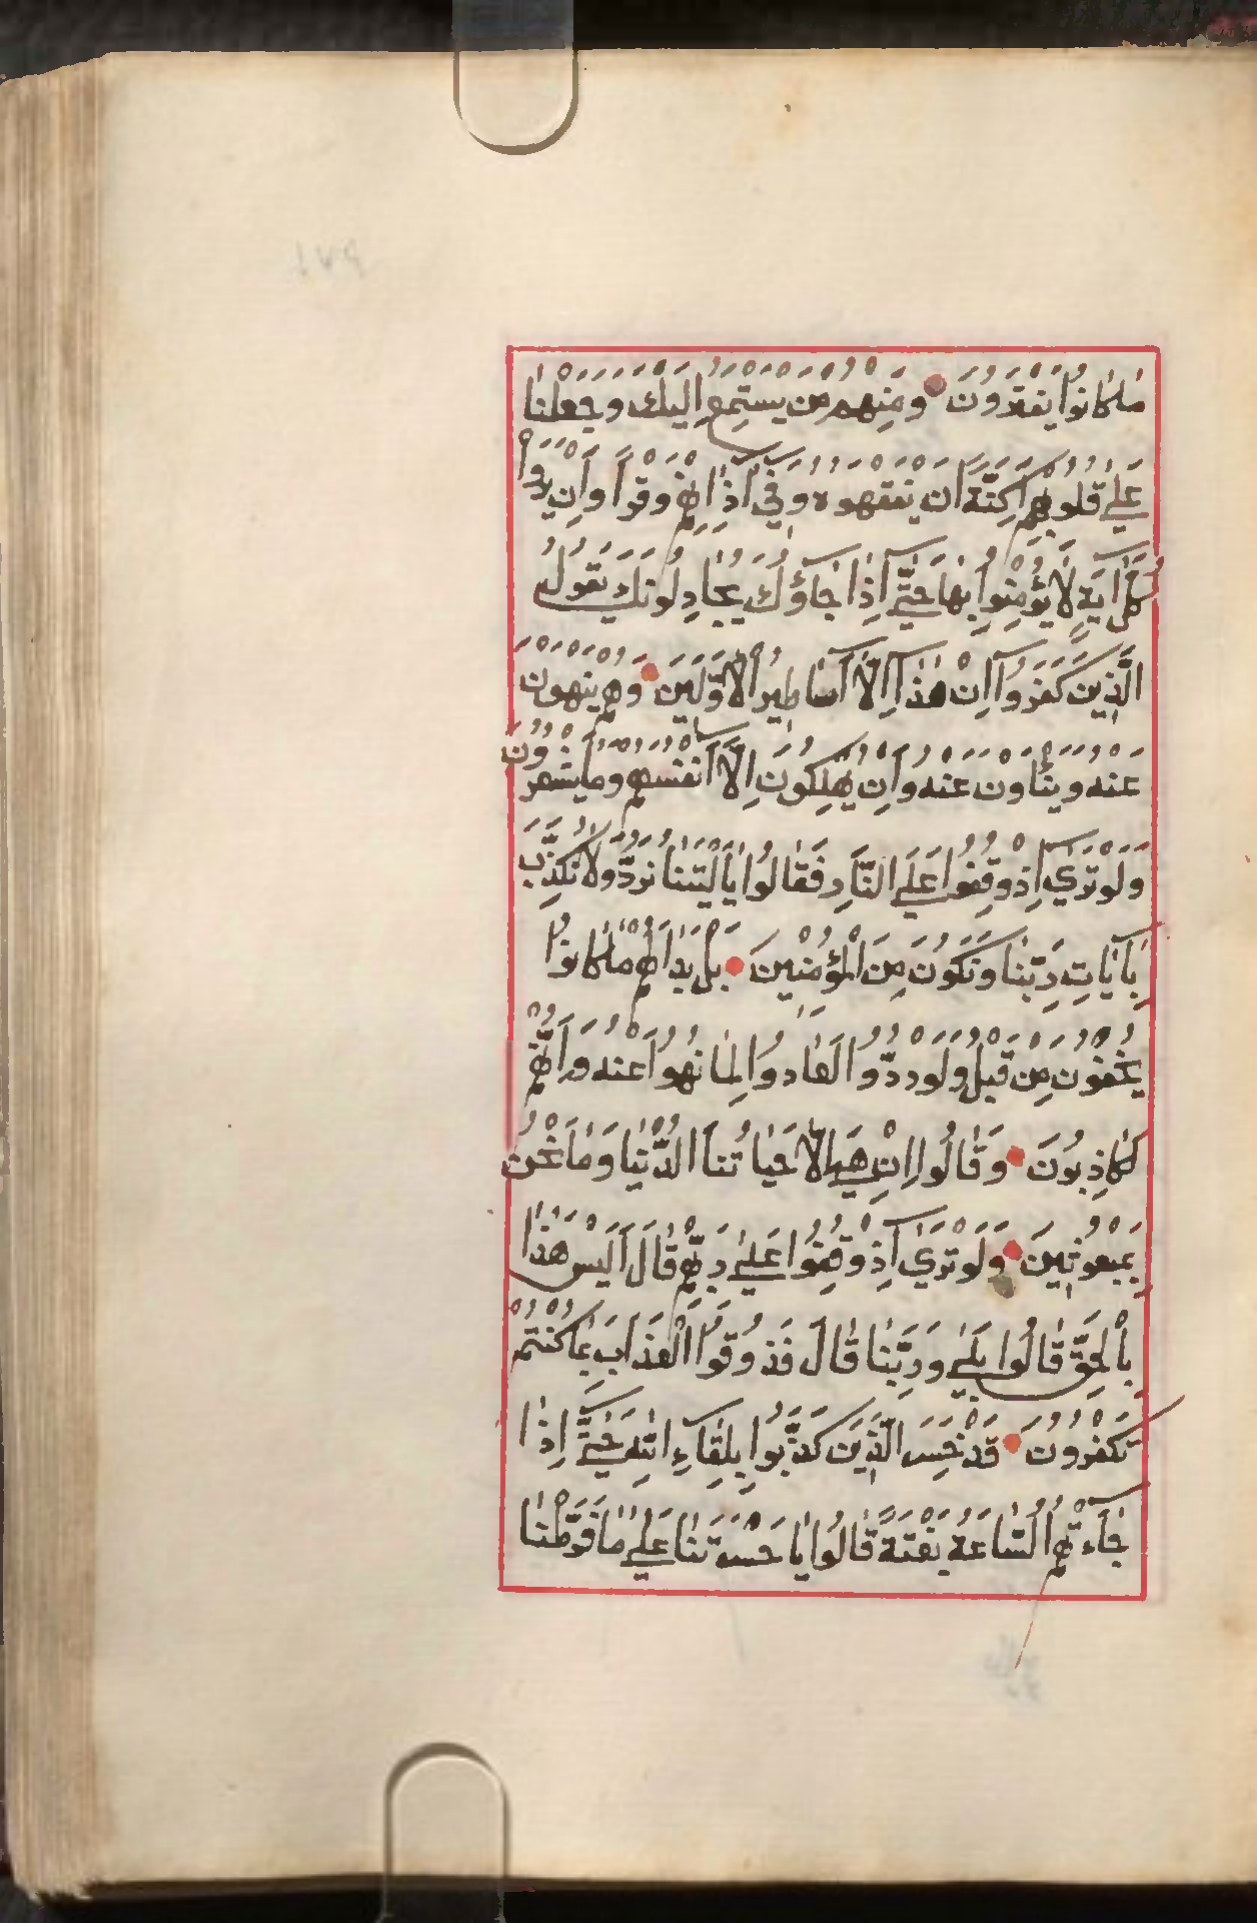 مَا كَانُوا يَفْتَرُونَ وَمِنْهُمْ مَنْ يَسْتَمِعُ اِلَيْكَ وَجَعَلْنَا
عَلٰى قُلُوبِهِمْ اَكِنَّةً اَنْ يَفْقَهُوهُ وَفِي اٰذَانِهِمْ وَقْرًا وَاِنْ يَرَوْا
كُلَّ اٰيَةٍ لَا يُؤْمِنُوا بِهَا حَتّٰى اِذَا جَاؤُكَ يُجَادِلُونَكَ يَقُولُ
الَّذِينَ كَفَرُوا اِنْ هٰذَا اِلَّا اَسَاطِيرُ الْاَوَّلِينَ وَهُمْ يَنْهَوْنَ
عَنْهُ وَيَنْأَوْنَ عَنْهُ وَاِنْ يُهْلِكُونَ اِلَّا اَنْفُسَهُمْ وَمَا يَشْعُرُونَ
وَلَوْ تَرٰى اِذْ وُقِفُوا عَلَى النَّارِ فَقَالُوا يَا لَيْتَنَا نُرَدُّ وَلَا نُكَذِّبَ
بِاٰيَاتِ رَبِّنَا وَنَكُونَ مِنَ الْمُؤْمِنِينَ بَلْ بَدَا لَهُمْ مَا كَانُوا
يُخْفُونَ مِنْ قَبْلُ وَلَوْ رُدُّوا لَعَادُوا لِمَا نُهُوا عَنْهُ وَاِنَّهُمْ
لَكَاذِبُونَ وَقَالُوا اِنْ هِيَ اِلَّا حَيَاتُنَا الدُّنْيَا وَمَا نَحْنُ
بِمَبْعُوثِينَ وَلَوْ تَرٰى اِذْ وُقِفُوا عَلٰى رَبِّهِمْ قَالَ اَلَيْسَ هٰذَا
بِالْحَقِّ قَالُوا بَلٰى وَرَبِّنَا قَالَ فَذُوقُوا الْعَذَابَ بِمَا كُنْتُمْ
تَكْفُرُونَ قَدْ خَسِرَ الَّذِينَ كَذَّبُوا بِلِقَاءِ اللّٰهِ حَتّٰى اِذَا
جَاءَتْهُمُ السَّاعَةُ بَغْتَةً قَالُوا يَا حَسْرَتَنَا عَلٰى مَا فَرَّطْنَا